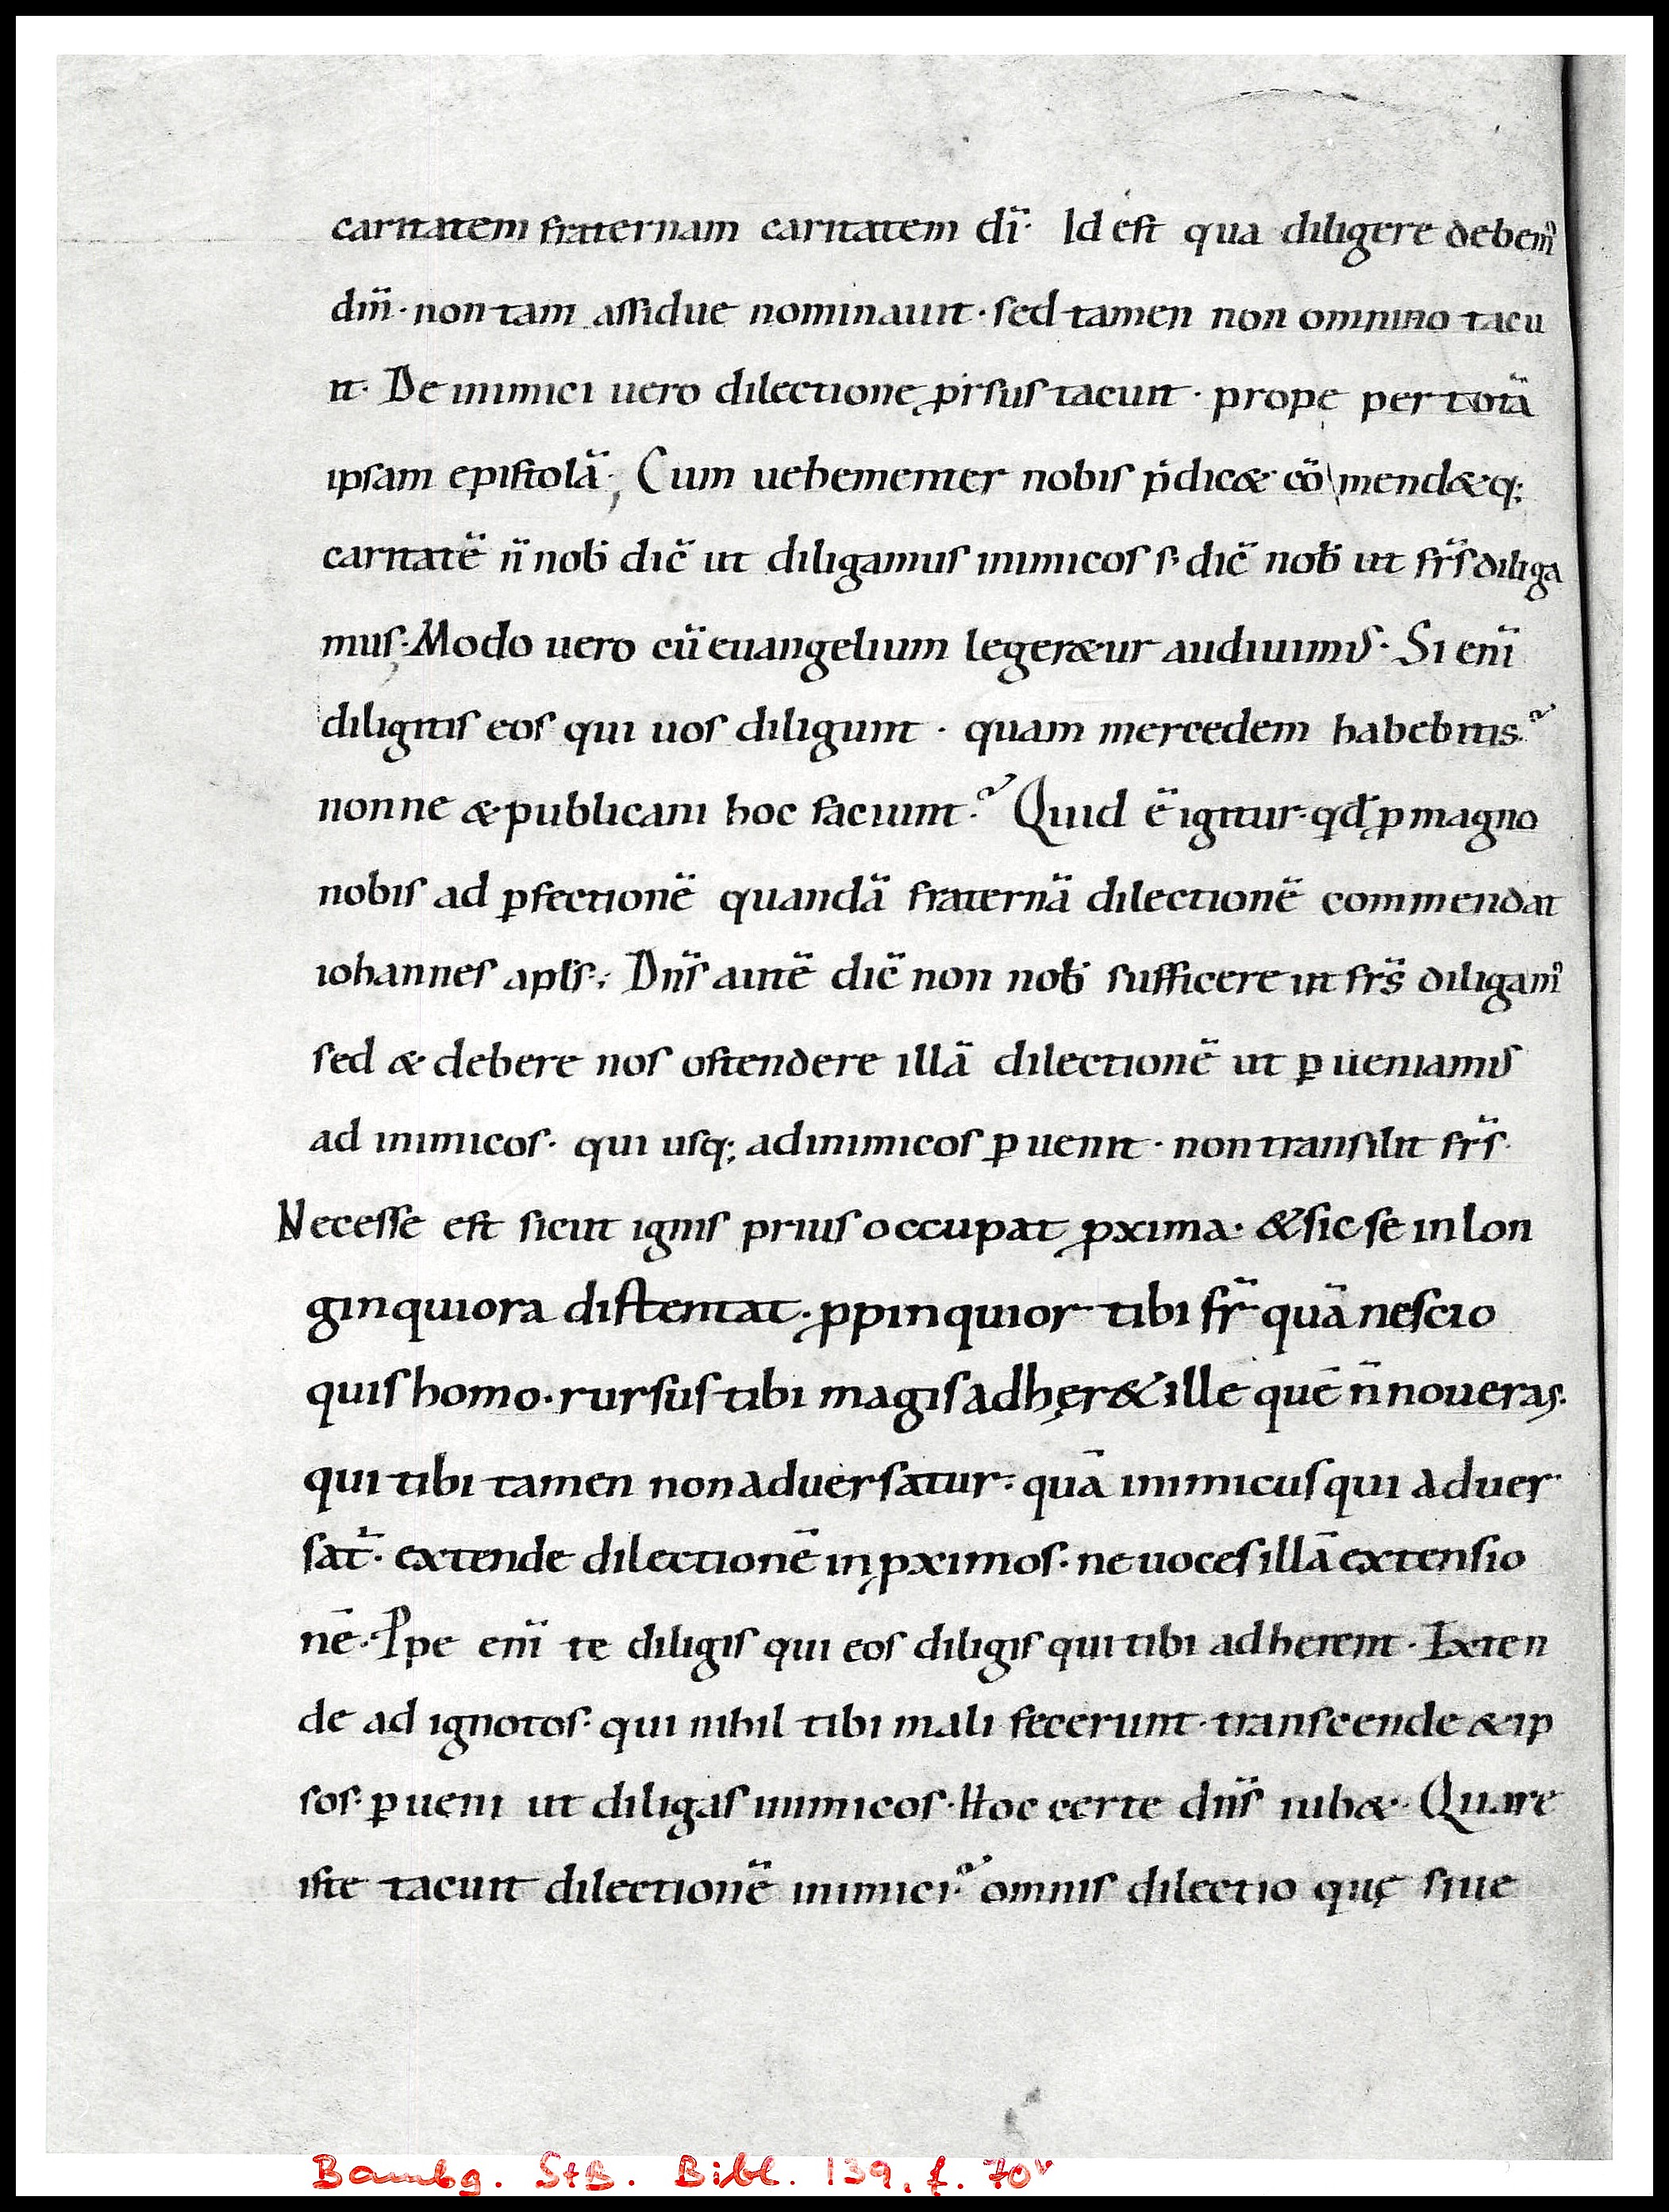 caritatem fraternam caritatem dī· Id est qua diligere debem᾿
dm̄· non tam assidue nominauit· sed tamen non omnino tacu
it· De inimici uero dilectione ꝓrsus tacuit· prope per totā
ipsam epistolā·, Cum uehementer nobis p̄dicæ cō mendæq;
caritatē n̄ nob̄ dic̄ ut diligamus inimicos s· dic̄ nob̄ ut fr̄s diliga
mus· Modo uero cū euangelium legeræur audiuimus· Si enī
diligitis eos qui uos diligunt· quam mercedem habebitis?
nonne & publicani hoc faciunt? Quid ē igitur· qd̄ ꝓ magno
nobis ad ꝑfectionē quandā fraternā dilectionē commendat
iohannes apl̄s·; Dn̄s autē dic̄ non nob̄ sufficere ut fr̄s diligam᾿
sed & debere nos ostendere illā dilectionē ut ꝑ ueniamus
ad inimicos· qui usq; ad inimicos ꝑ uenit· non transilit fr̄s·
Necesse est sicut ignis prius occupat ꝓxima· & sic se in lon
ginquiora distentat· ꝓpinquior tibi fr̄ quā nescio
quis homo· rursus tibi magis adhęr& ille quē n̄ noueras·
qui tibi tamen non aduersatur· quā inimicus qui aduer
sat᷑· extende dilectionē in ꝓximos· ne uoces illā extensio
nē· Ipe enī te diligis qui eos diligis qui tibi adherent· Exten
de ad ignotos· qui nihil tibi mali fecerunt· transcende & ip
sos· ꝑ ueni ut diligas inimicos· Hoc certe dn̄s iubæ· Quare
iste tacuit dilectionē inimici? omnis dilectio quę siue
Bambg. StB. Bibl. 139, f. 70v